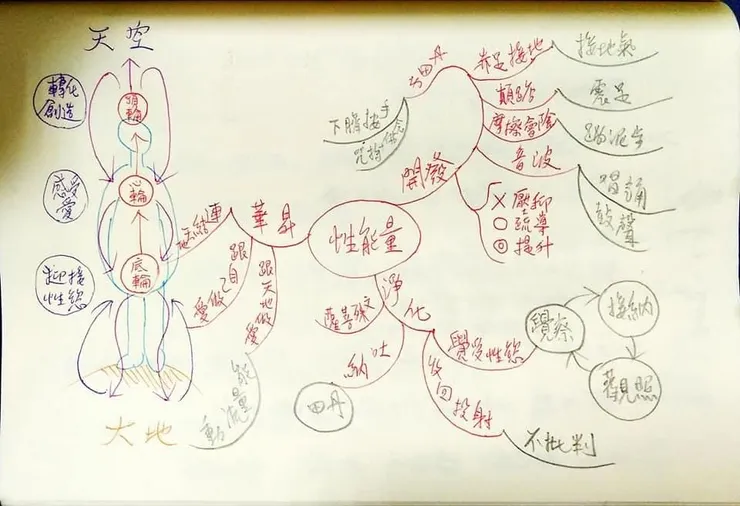 天空
轉化
創造
頂輪
感受
愛
心輪
迎接
性慾
底輪
大地
性能量
開發
下丹田
下腹按手
赤足接地
接地氣
顛踏
震足
摩擦會陰
踏泥土
音波
冒誦
鼓聲
X 壓抑
○ 疏導
◎ 提升
昇華
連結天地
跟自己做愛
跟天地做愛
能量流動
淨化
吐納
丹田
覺受性慾
覺察
接納
觀照
收回投射
不批判